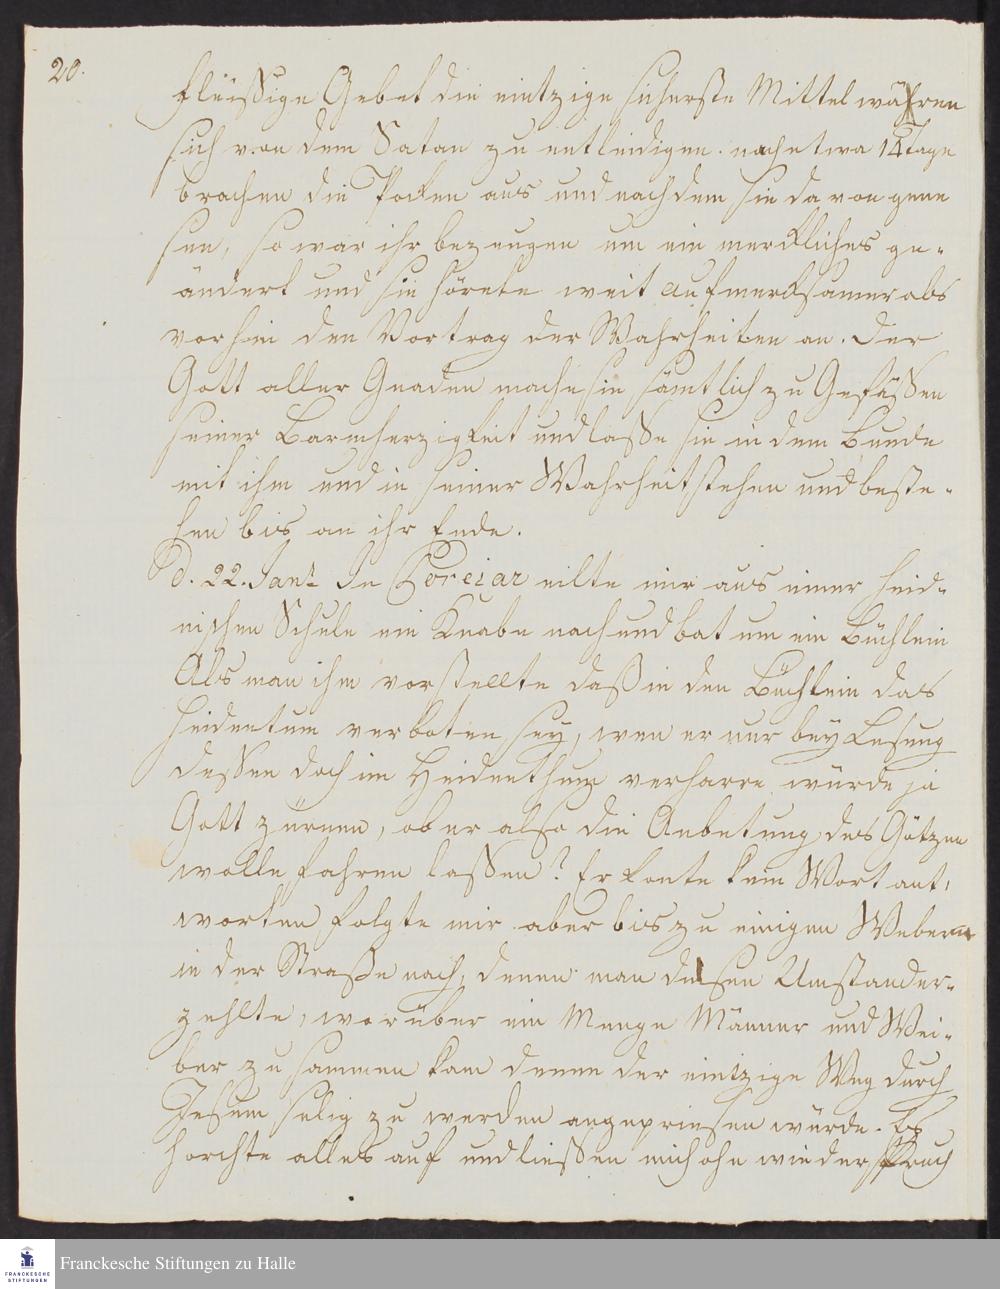 20.
fleißige Gebet die eintzige sicherste Mittel währen
sich von dem Satan zu entledigen. nach etwa 14 Tage
brachen die Pocken aus und nachdem sie davon gene
sen, so war ihr bezeugen um ein merckliches ge-
ändert und sie hörete weit aufmercksamer als
vorhin den Vortrag der Wahrheiten an. Der
Gott aller Gnaden mache sie sämtlich zu Gefäßen
seiner Barmherzigkeit und laße sie in dem Bunde
mit ihm und in seiner Wahrheit stehen und beste-
hen bis an ihr Ende.
d. 22. Jan. In Poreiar eilte mir aus einer heid-
nischen Schule ein Knabe nach und bat um ein Büchlein
Als man ihm vorstellte daß in den Büchlein das
Heidentum verboten sey, wen er nur bey Lesung
deßen doch im Heidenthum verharre würde ja
Gott zürnen, ob er also die Anbetung des Götzen
wolle fahren laßen? Er konte kein Wort ant,
worten folgte mir aber bis zu einigen Webern
in der Straße nach, denen man diesen Umstand er-
zehlte, worüber ein Menge Männer und Wei-
ber zusammen kam denen der eintzige Weg durch
Jesum selig zu werden angepriesen würde. Es
horchte alles auf und ließen mich ohn wiederspruch
FRANCKESCHE
STIFTUNGEN
Franckesche Stiftungen zu Halle